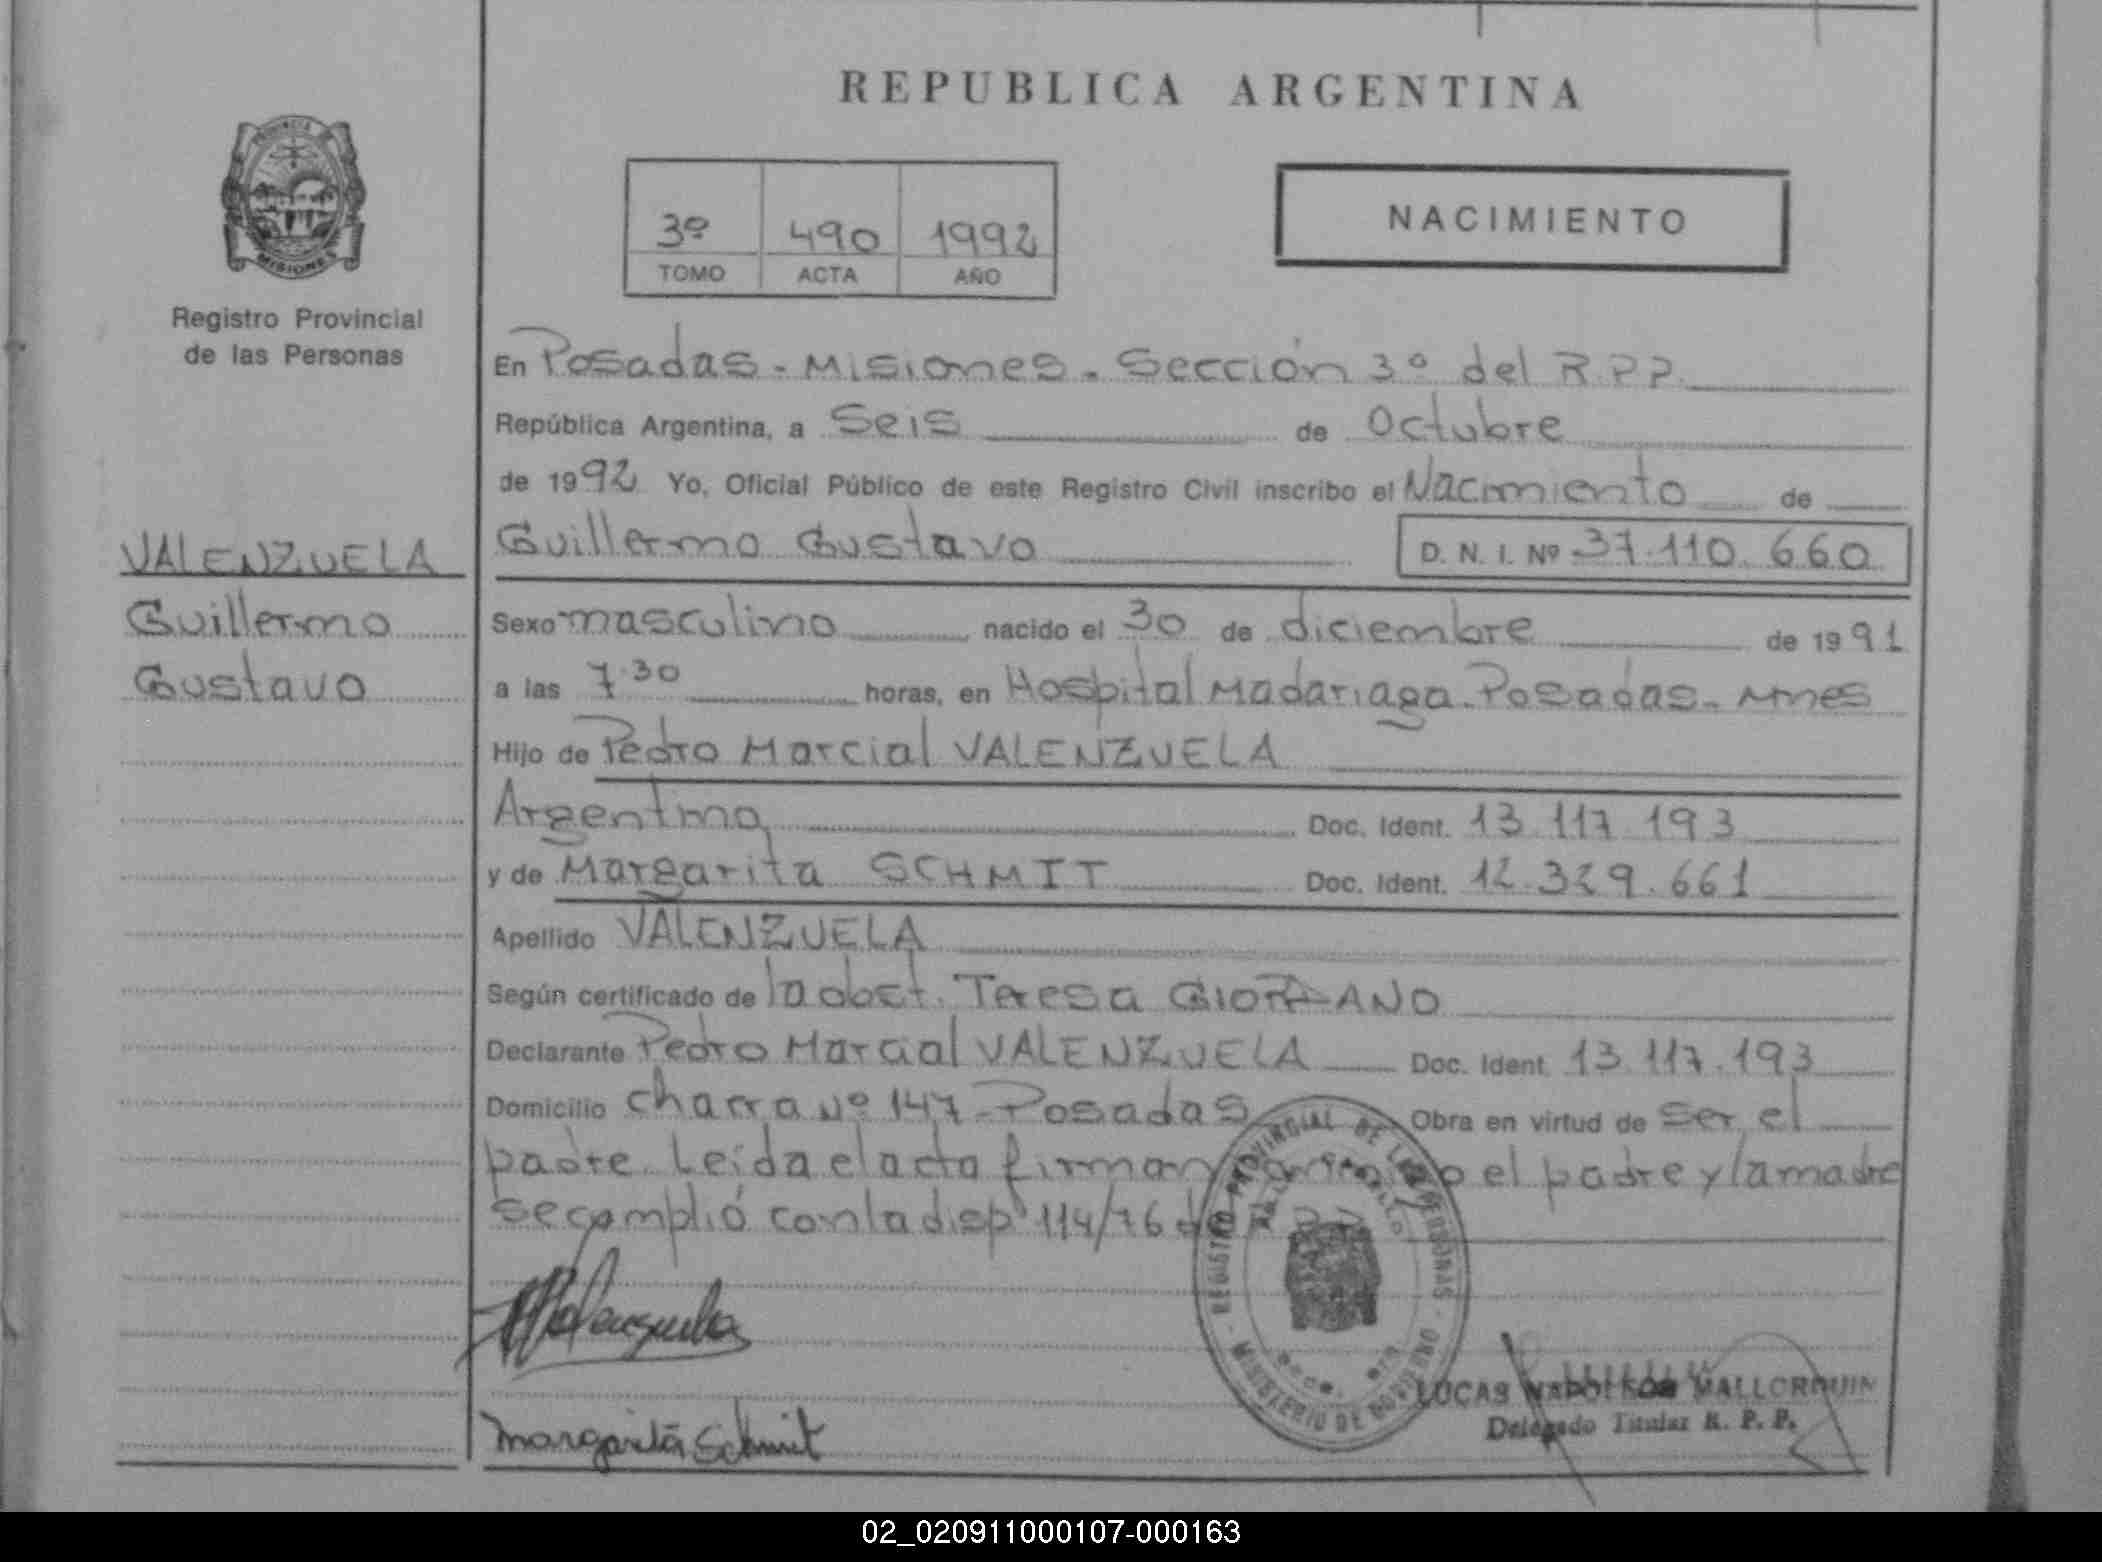 REPUBLICA ARGENTINA
PROVINCIA
MISIONES
Registro Provincial
de las Personas
3º 490 1992
TOMO ACTA AÑO
NACIMIENTO
En Posadas - Misiones. Sección 3º del R.P.P.
República Argentina, a Seis de Octubre
de 1992 Yo, Oficial Público de este Registro Civil inscribo el Nacimiento de
Guillermo Gustavo D. N. I. Nº 37.110.660
VALENZUELA
Guillermo
Gustavo
Sexo masculino nacido el 30 de diciembre de 1991
a las 7.30 horas, en Hospital Madariaga. Posadas - Mnes
Hijo de Pedro Marcial VALENZUELA
Argentino Doc. Ident. 13.117.193
y de Margarita SCHMIT Doc. Ident. 12.329.661
Apellido VALENZUELA
Según certificado de la obst. Teresa
Declarante Pedro Marcial VALENZUELA Doc. Ident. 13.117.193
Domicilio Chacra Nº 147 - Posadas Obra en virtud de ser el
padre. Leída el acta firman el padre y la madre
se complió con la disp 114/76
REGISTRO PROVINCIAL DE LAS PERSONAS
MINISTERIO DE GOBIERNO
Valenzuela
Margarita Schmit
LUCAS MALLORQUIN
Delegado Titular R. P. P.
02_020911000107-000163